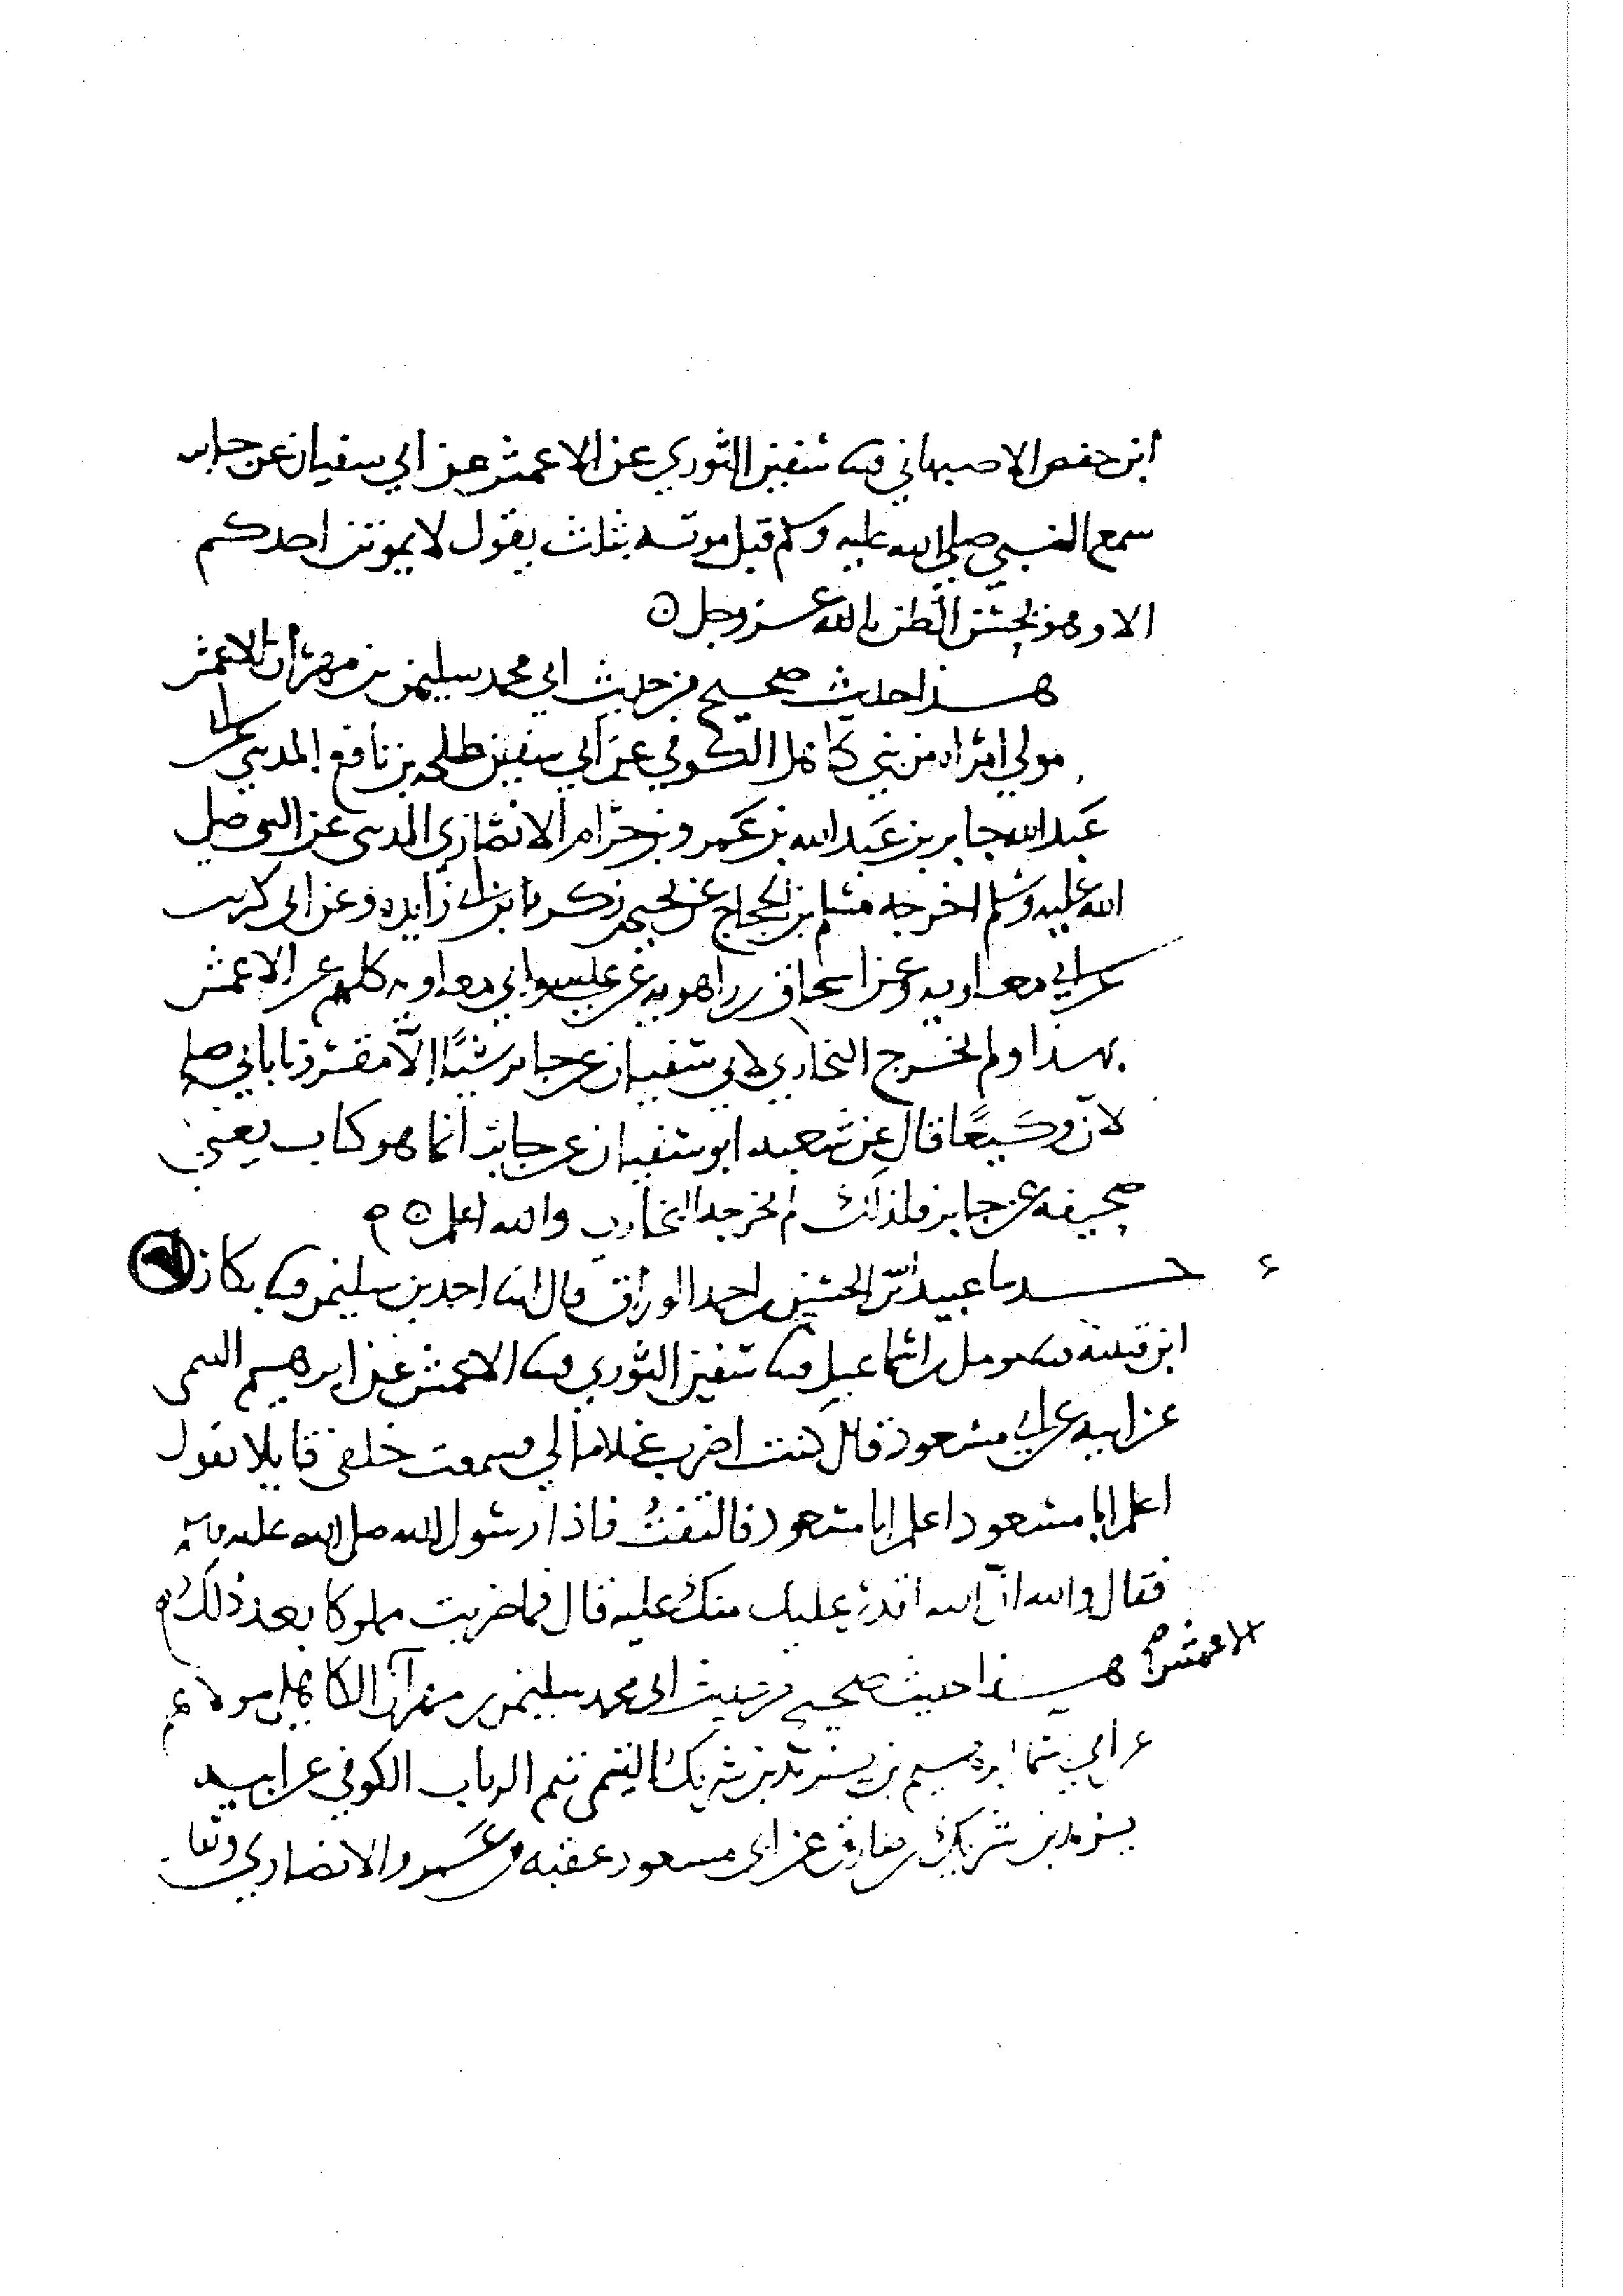 ابن حفص الاصبهاني ثنا سفين الثوري عن الاعمش عن ابي سفيان عن جابر
سمع النبي صلى الله عليه وسلم قبل موته بثلث يقول لا يموتن احدكم
الا وهو يحسن الظن بالله عز وجل
هذا حديث صحيح من حديث ابي محمد سليمن بن مهران الاعمش
مولى امراه من بني كاهل الكوفي عن ابي سفين طلحه بن نافع المدني عن ابي
عبد الله جابر بن عبد الله بن عمرو بن حرام الانصاري المدني عن النبي صلى
الله عليه وسلم اخرجه مسلم بن الحجاج عن يحيى زكريا بن ابي زايده وعن ابي كريب
عن ابي معاويه وعن اسحاق بن راهويه عن عيسى وابي معاويه كلهم عن الاعمش
بهذا ولم يخرج البخاري لابي سفيان عن جابر شيئا إلا مقرونا بابي صلح
لان وكيعا قال عن شعبه ابو سفيان عن جابر انما هو كتاب يعني
صحيفه عن جابر فلذلك لم يخرجه البخاري والله اعلم
حدثنا عبيد الله بن الحسين بن احمد الوراق قال ثنا احمد بن سليمن ثنا بكار
ابن قتيبه ثنا مومل بن اسماعيل ثنا سفين الثوري ثنا الاعمش عن ابرهيم التيمي
عن ابيه عن ابي مسعود قال كنت اضرب غلاما لي فسمعت خلفي قايلا يقول
اعلم ابا مسعود اعلم ابا مسعود فالتفت فاذا رسول الله صلى الله عليه
فقال والله ان الله اقدر عليك منك عليه قال فما ضربت مملوكا بعد ذلك
هذا حديث صحيح من حديث ابي محمد سليمن بن مهران الكاهلي مولاهم الاعمش
عن ابي سما ابرهيم بن يزيد بن شريك التيمي تيم الرباب الكوفي عن ابيه
يزيد بن شريك بن طارق عن ابي مسعود عقبه بن عمرو الانصاري